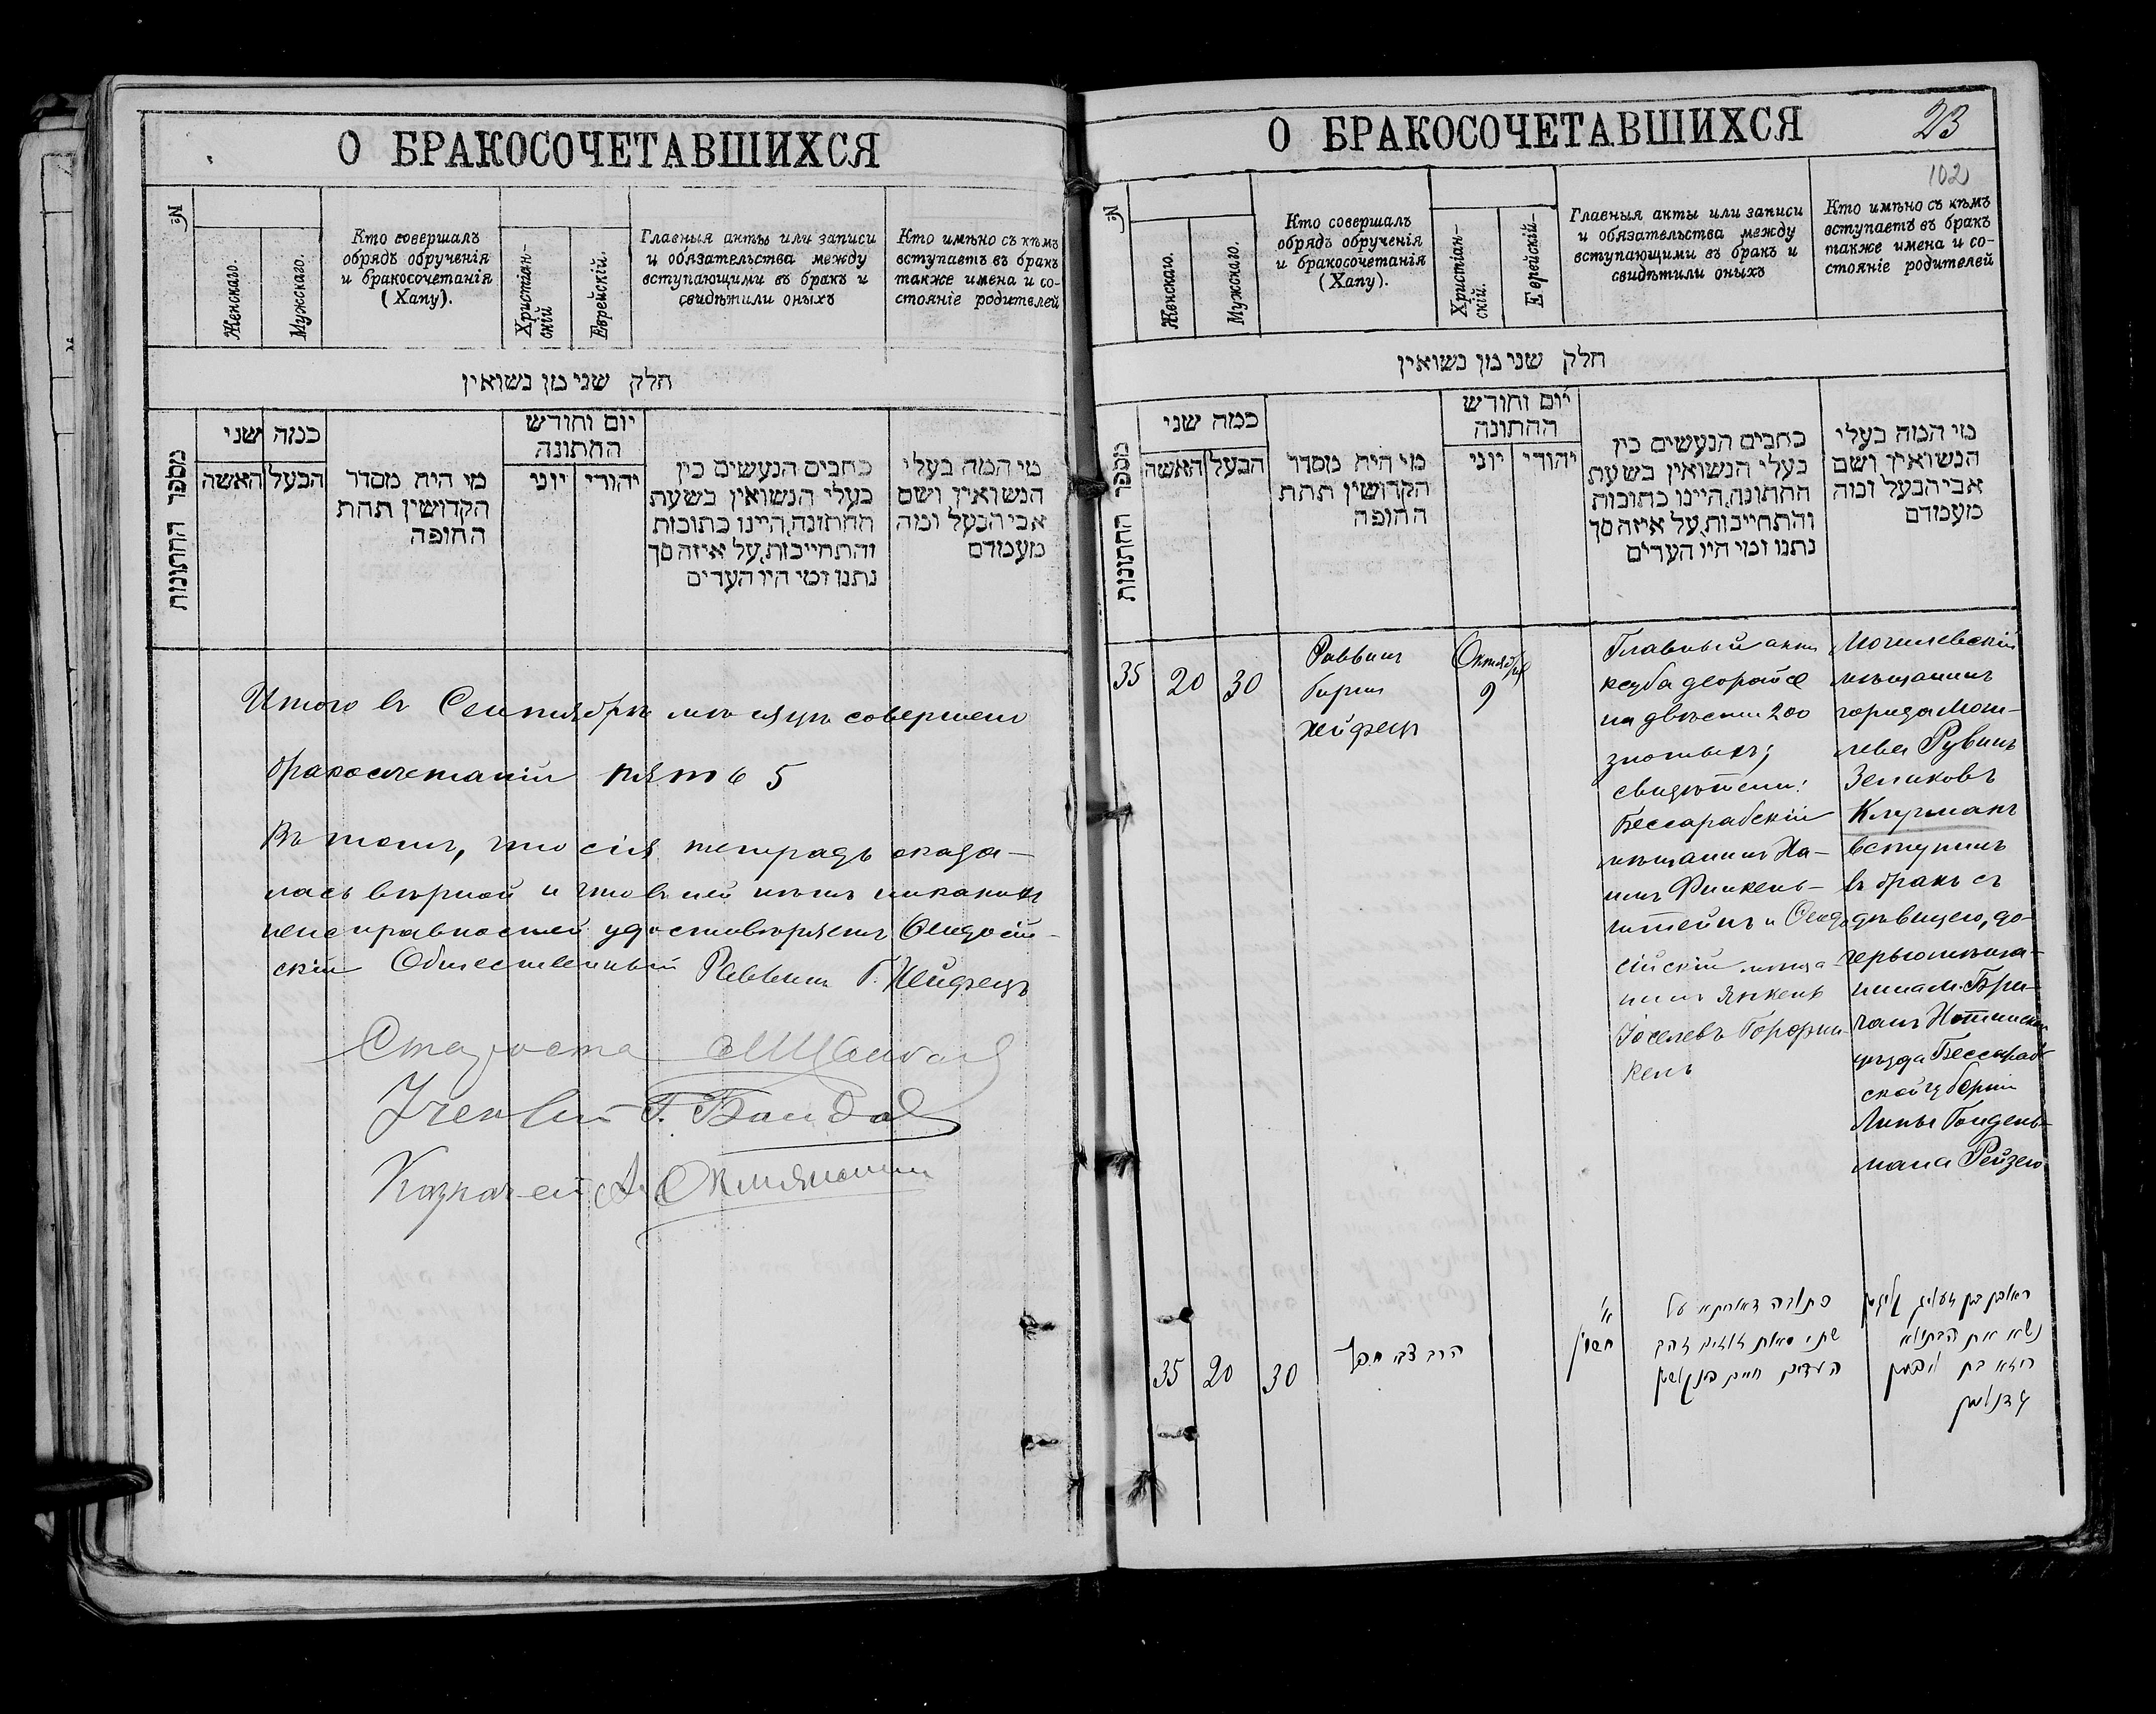 О БРАКОСОЧЕТАВШИХСЯ
№
Женскаго.
Мужскаго.
Кто совершалъ
обрядъ обрученія
и бракосочетанія
(Хапу).
Христіан-
скій
Еврейскій.
Главныя акты или записи
и обязательства между
вступающими въ бракъ и
свидѣтили оныхъ
Кто имѣно съ кѣмъ
вступаетъ въ бракъ
также имена и со-
стояніе родителей
חלק שני מן נשואין
מספר החתונות
כמה שני
האשה
הבעל
מי הית מסדר
הקדושין תחת
החופה
יום וחודש
החתונה
יוני
יהודי
כתבים הנעשים בין
בעלי הנשואין בשעת
החתונה, היינו כתובות
והתחייבות, על איזה סך
נתנו ומי היו העדים
מי המה בעלי
הנשואין ושם
אבי הבעל ומה
מעמדם
Итого въ Сентябрѣ мѣсяцѣ совершено
бракосочетаній пять 5
Въ томъ, что сія тетрадь оказа-
лась вѣрной и что въ ней нѣтъ никакихъ
неисправностей удостовѣряетъ Ѳеодосій-
скій Общественный Раввинъ Г. Хейфецъ
Староста
Ученый Г.
Казначей А.
О БРАКОСОЧЕТАВШИХСЯ
23
102
№
Женскаго.
Мужскаго.
Кто совершалъ
обрядъ обрученія
и бракосочетанія
(Хапу).
Христіан-
скій.
Еврейскій-
Главныя акты или записи
и обязательства между
вступающими въ бракъ и
свидѣтили оныхъ
Кто имѣно съ кѣмъ
вступаетъ въ бракъ
также имена и со-
стояніе родителей
חלק שני מן נשואין
מספר החתונות
כמה שני
האשה
הבעל
מי הית מסדר
הקדושין תחת
החופה
יום וחודש
החתונה
יוני
יהודי
כתבים הנעשים בין
בעלי הנשואין בשעת
החתונה, היינו כתובות
והתחייבות, על איזה סך
נתנו ומי היו העדים
מי המה בעלי
הנשואין ושם
אבי הבעל ומה
מעמדם
35
20
30
Раввинъ
Гирша
Хейфецъ
Октября
9
Главный актъ
ксуба деорайсе
на двѣсти 200
злотыхъ;
свидѣтели:
Бессарабскій
мѣщанинъ Ха-
имъ Финкель-
штейнъ и Ѳеодо-
сійскій мѣща-
нинъ Янкель
Іоселевъ Горфин-
кель
Могилевскій
мѣщанинъ
города Моги-
лева Рувинъ
Зеликовъ
Клугманъ
вступилъ
въ бракъ съ
дѣвицею, до-
черью мѣща-
нина м. Бри-
чанъ Хотинскаго
уѣзда Бессараб-
ской губерніи
Липы Гольден-
мана Рейзею
35
20
30
הרב צבי חפץ
א'
חשון
כתובה דאריתא על
שתי מאות זהובים זהב
העדים חיים פינקלשטין
ראובן בן זעליג קלוגמן
נשא את הבתולא
רוזא בת ליפמן
גאלדנמן